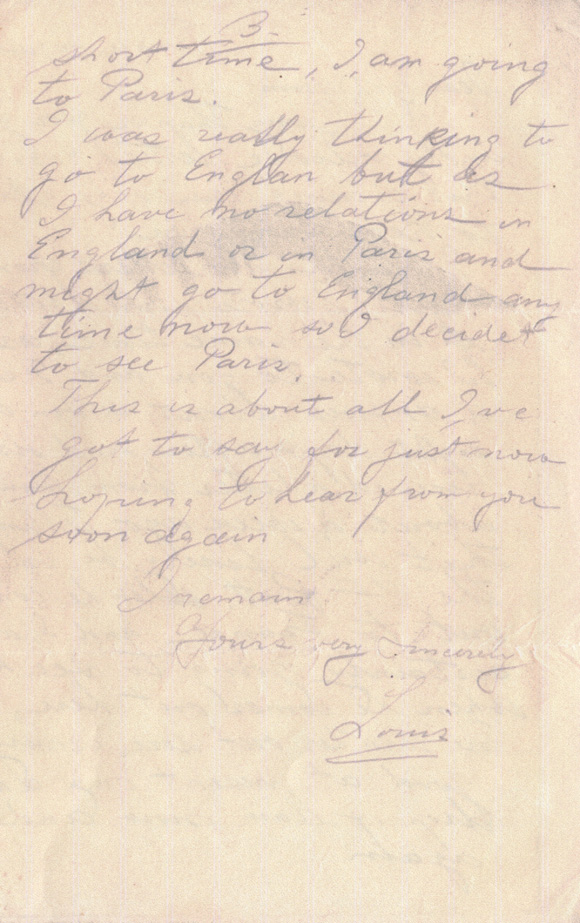 3.
short time, I, am going
to Paris.
I was really thinking to
go to Englan but as
I have no relations in
England or in Paris and
might go to England any
time now so I decidet
to see Paris.
This is about all I,ve
got to say for just now
hoping to hear from you
soon again
I remain
Yours very sincerely
Louis